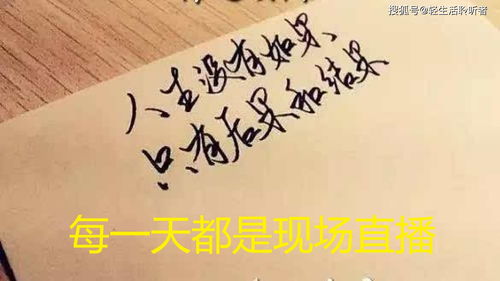 搜狐号@轻生活聆听者
人生没有如果、
只有后果和结果
每一天都是现场直播